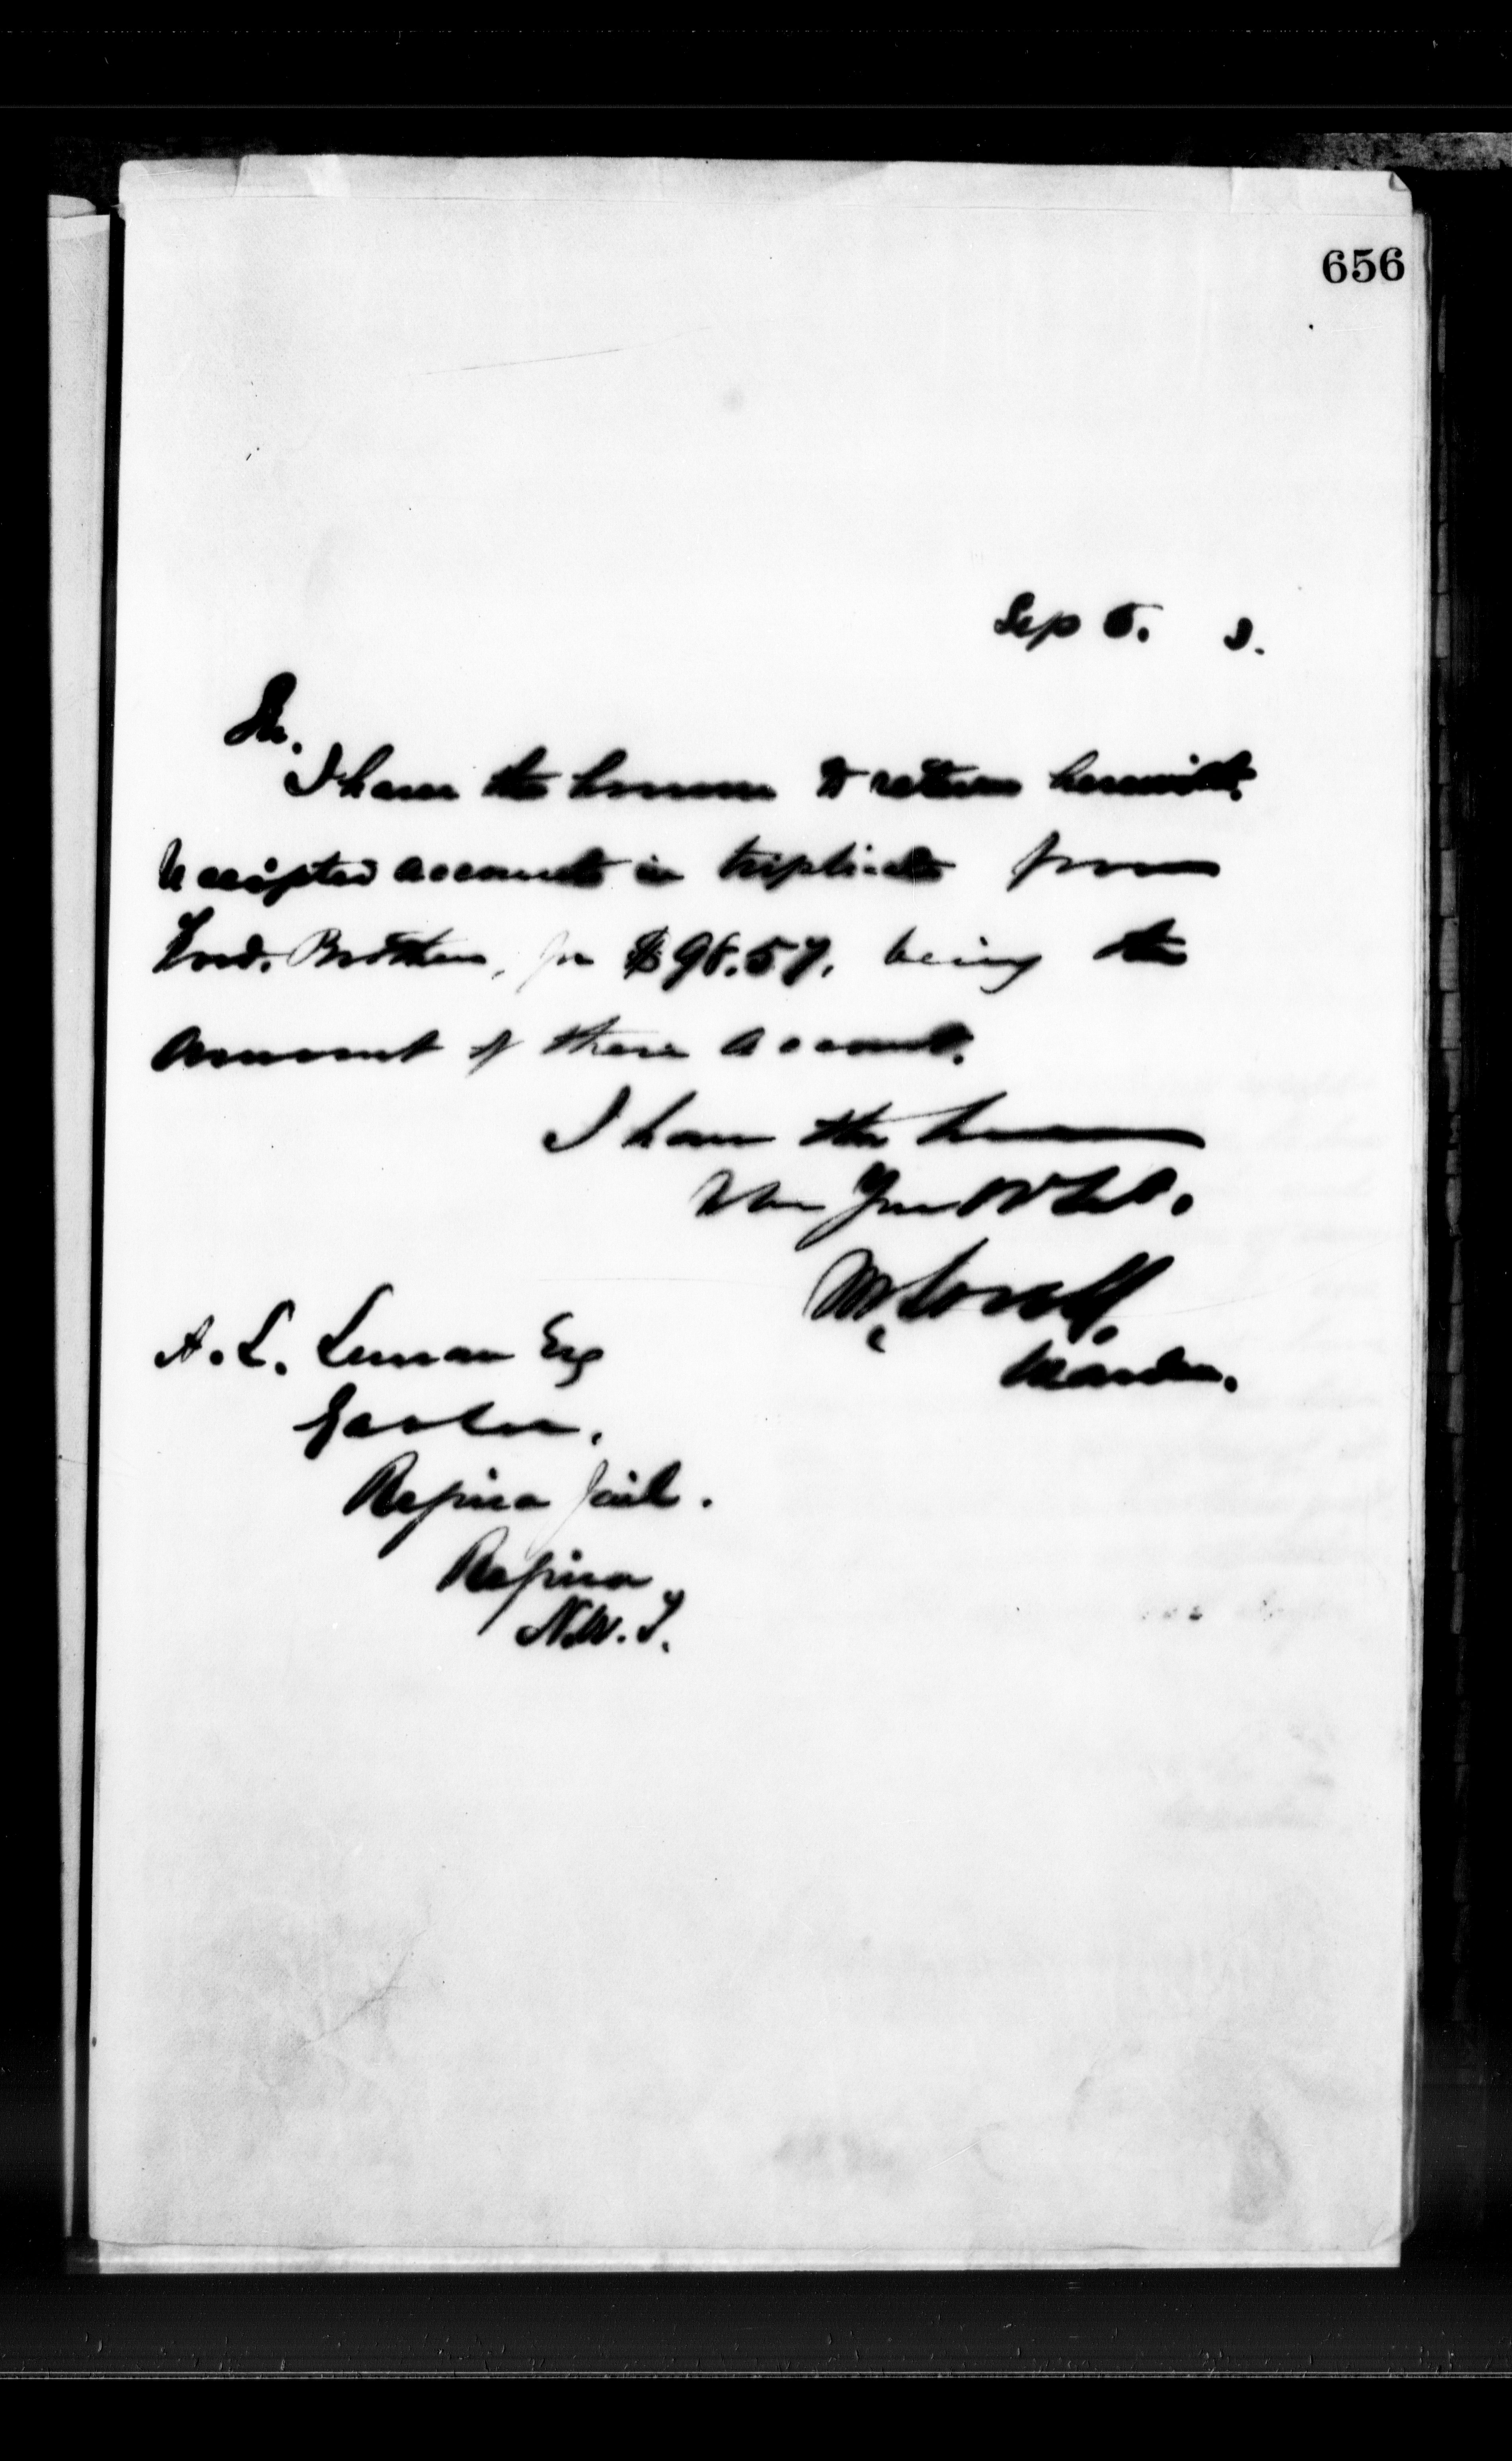 656
Sep 5. 8.
Sir.
I have the honour to return herewith
receipted accounts in triplicate from
Ford. Brothers, for $98.57. being the
amount of their account.
I have the honour
to be Your Ob Sert.
Warden.
A. L. Lunan Esq
Gaoler.
Regina Jail.
Regina
N.W.T.